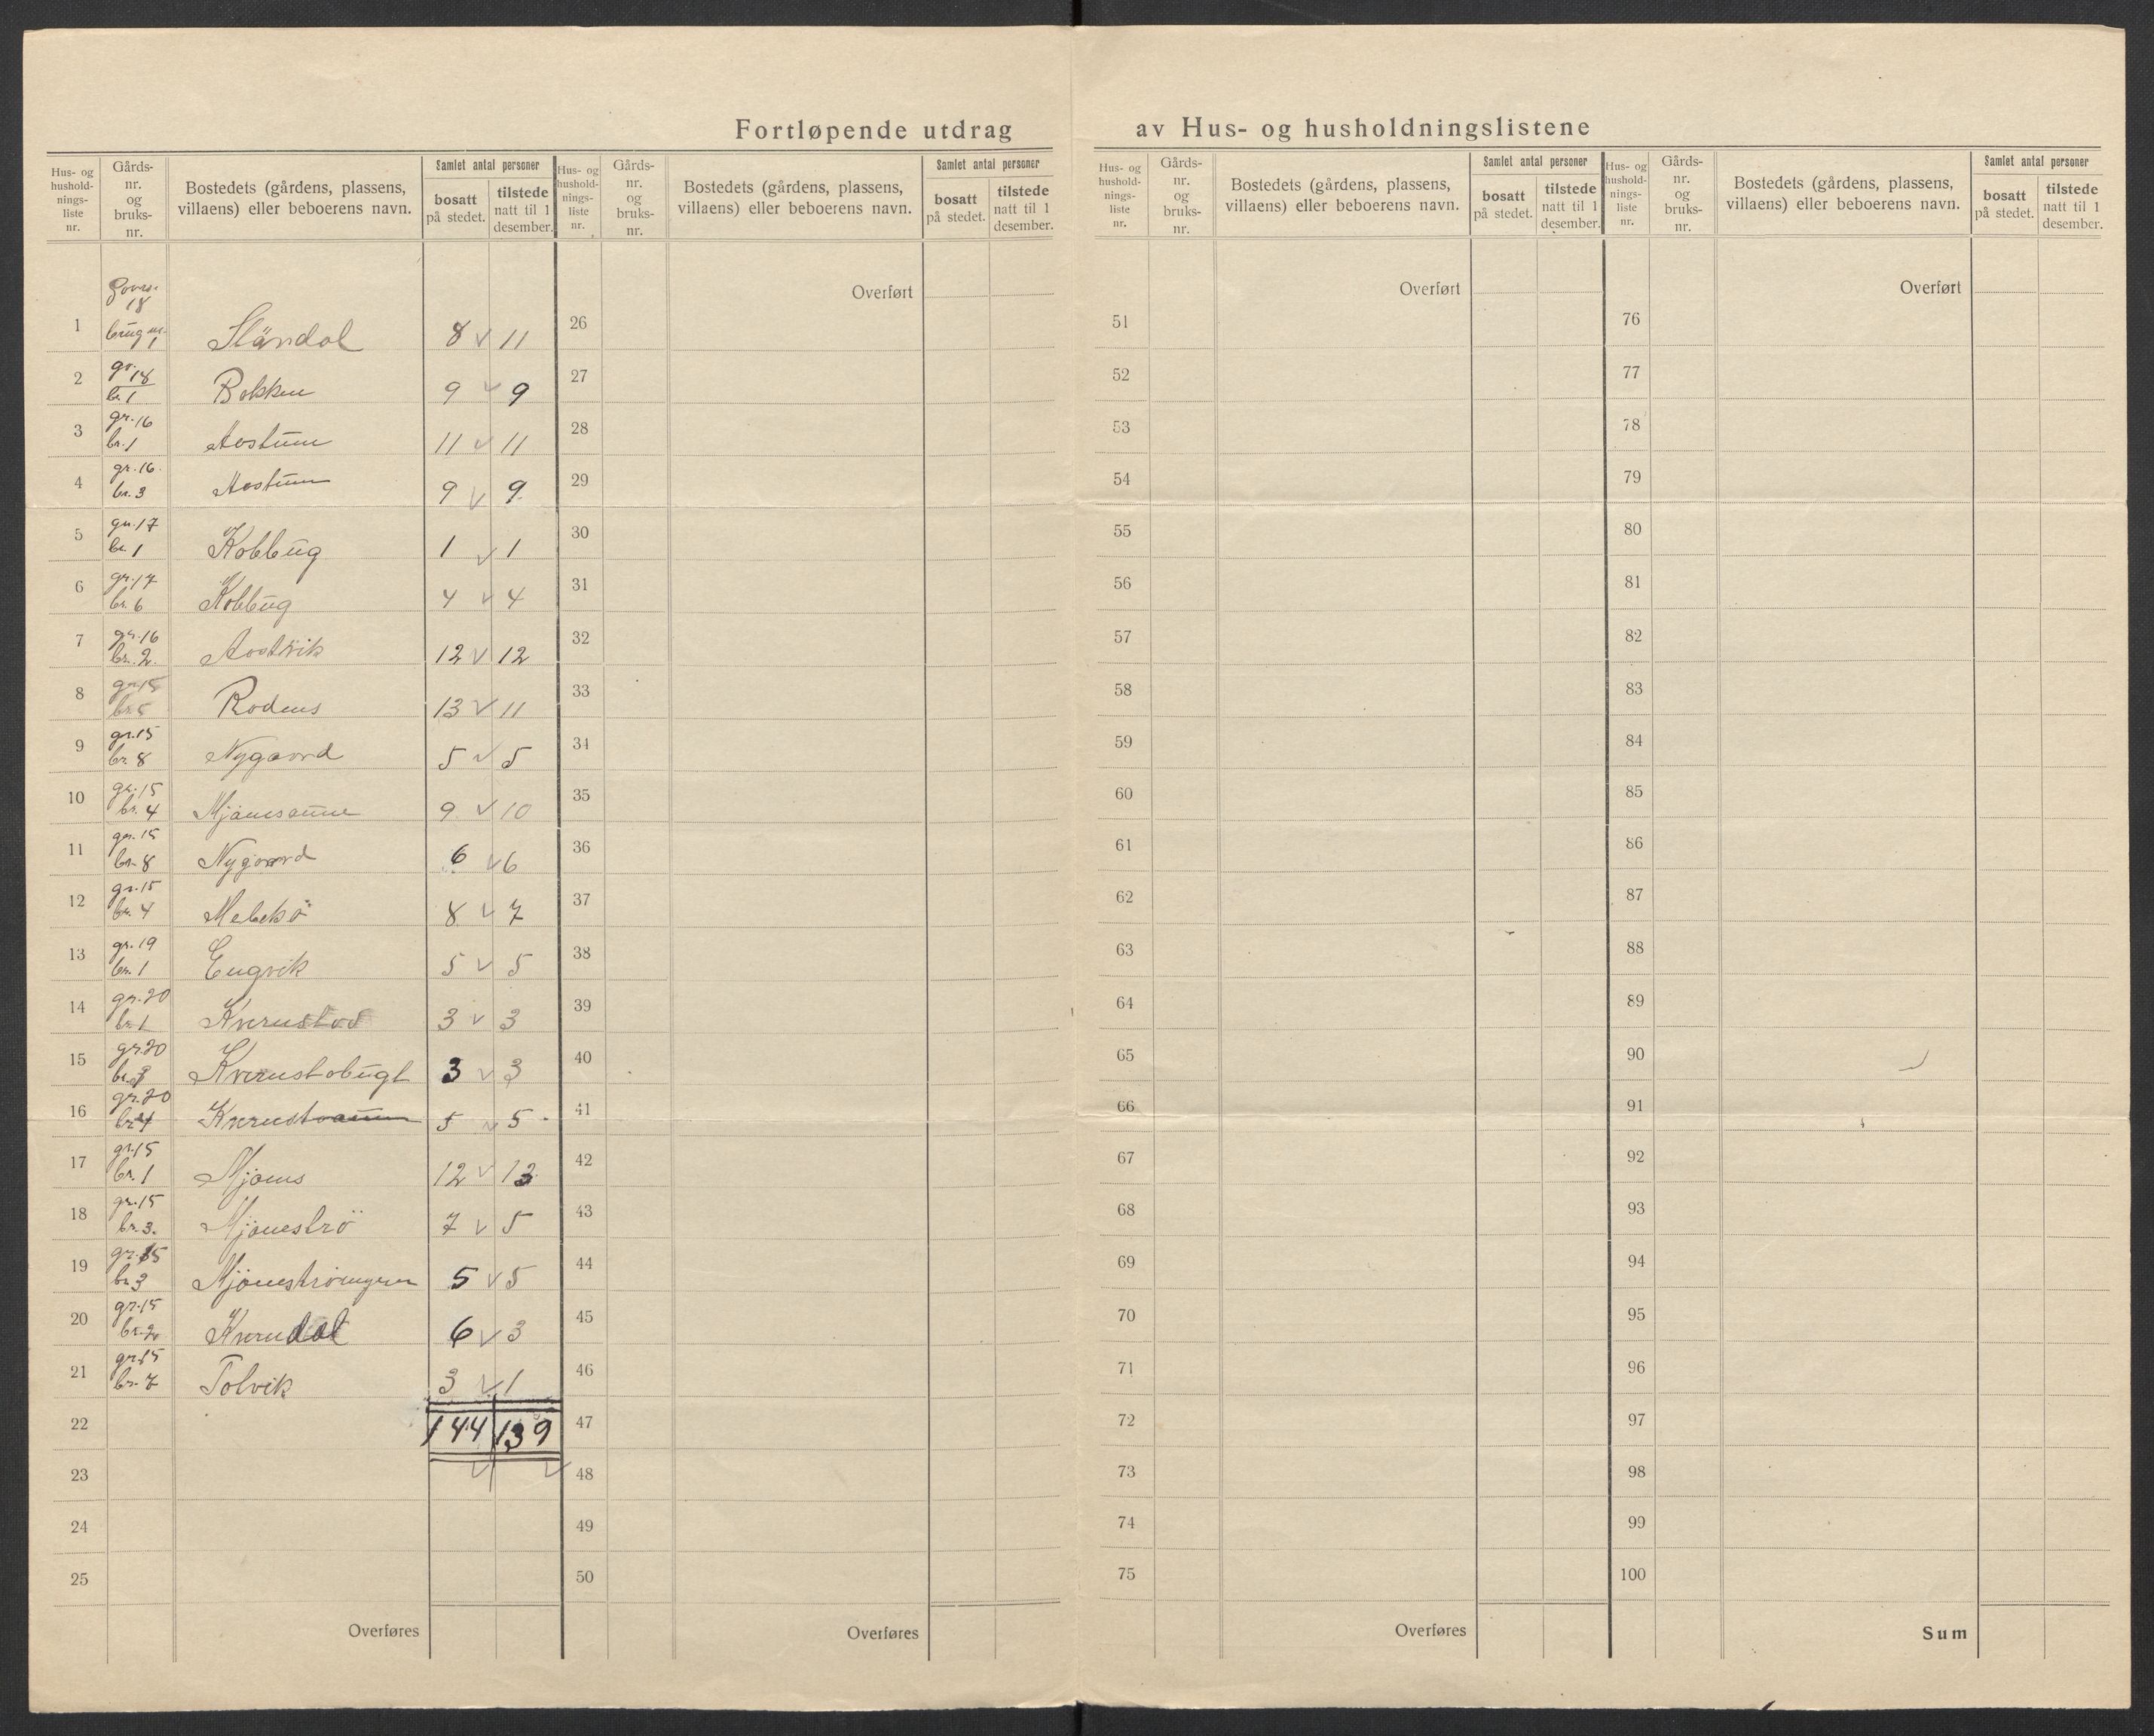 Fortløpende utdrag av Hus- og husholdningslistene
Hus- og hushold- nings- liste nr. | Gårds- nr. og bruks- nr. | Bostedets (gårdens, plassens, villaens) eller beboerens navn. | Samlet antal personer | bosatt på stedet. | tilstede natt til 1 desember.
Hus- og hushold- nings- liste nr. | Gårds- nr. og bruks- nr. | Bostedets (gårdens, plassens, villaens) eller beboerens navn. | Samlet antal personer | bosatt på stedet. | tilstede natt til 1 desember.
Hus- og hushold- nings- liste nr. | Gårds- nr. og bruks- nr. | Bostedets (gårdens, plassens, villaens) eller beboerens navn. | Samlet antal personer | bosatt på stedet. | tilstede natt til 1 desember.
Hus- og hushold- nings- liste nr. | Gårds- nr. og bruks- nr. | Bostedets (gårdens, plassens, villaens) eller beboerens navn. | Samlet antal personer | bosatt på stedet. | tilstede natt til 1 desember.
Overført Overført Overført
1 18 brug nr. 1 8 v 11 26 51 76
2 gr. 18 br. 1 9 v 9 27 52 77
3 gr. 16 br. 1 Aostum 11 v 11 28 53 78
4 gr. 16 br. 3 Aostum 9 v 9 29 54 79
5 gr. 17 br. 1 Kobbug 1 v 1 30 55 80
6 gr. 17 br. 6 Kobbug 4 v 4 31 56 81
7 gr. 16 br. 2. Aostvik 12 v 12 32 57 82
8 gr. 15 br. 5 Rodens 13 v 11 33 58 83
9 gr. 15 br. 8 Nygaard 5 v 5 34 59 84
10 gr. 15 br. 4 Mjønesaune 9 v 10 35 60 85
11 gr. 15 br. 8 Nygaard 6 v 6 36 61 86
12 gr. 15 br. 4 8 v 7 37 62 87
13 gr. 19 br. 1 Engvik 5 v 5 38 63 88
14 gr. 20 br. 1 3 v 3 39 64 89
15 gr. 20 Kvernstobugt 3 v 3 40 65 90
16 gr. 20 br. 4 5 v 5 41 66 91
17 gr. 15 br. 1 Mjønes 12 v 13 42 67 92
18 gr. 15 br. 3. Mjøneströ 7 v 5 43 68 93
19 gr. 15 br. 3 5 v 5 44 69 94
20 gr. 15 br. 2 Kverndal 6 v 3 45 70 95
21 gr. 15 br. 7 Tolvik 3 v 1 46 71 96
22 144 139 47 72 97
23 v v 48 73 98
24 49 74 99
25 50 75 100
Overføres Overføres Overføres Sum